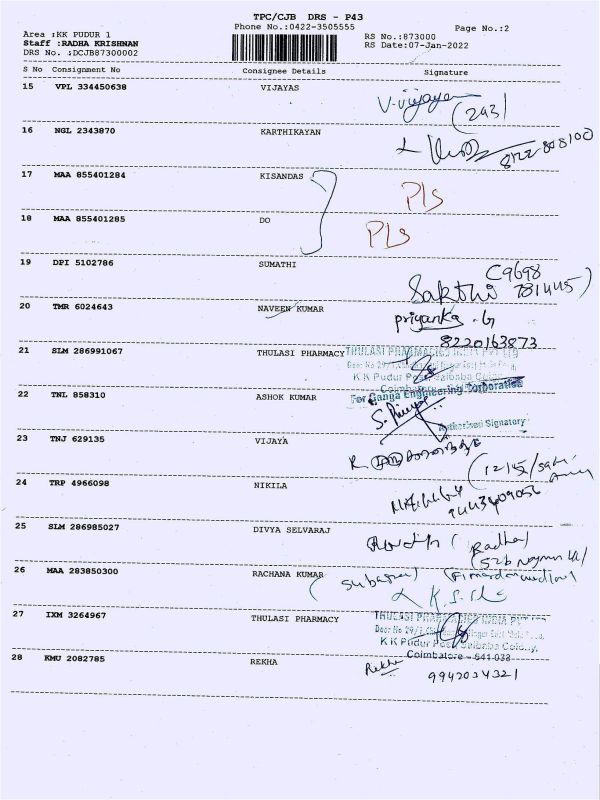 TPC/CJB DRS - P43
Phone No.:0422-3505555
Page No.:2
Area :KK PUDUR 1
Staff :RADHA KRISHNAN
DRS No. :DCJB87300002
RS No.:873000
RS Date:07-Jan-2022
S No Consignment No Consignee Details Signature
15 VPL 334450638 VIJAYAS
V.vijayan (243)
16 NGL 2343870 KARTHIKAYAN
17 MAA 855401284 KISANDAS Pls
18 MAA 855401285 DO Pls
19 DPI 5102786 SUMATHI
Sakthi (9698 781445)
20 TMR 6024643 NAVEEN KUMAR
priyanka .G
8220163873
21 SLM 286991067 THULASI PHARMACY
THULASI PHARMACIES INDIA PVT LTD
K K Pudur Post, Saibaba Colony
Coimbatore
22 TNL 858310 ASHOK KUMAR
For Ganga Engineering Corporation
Authorised Signatory
23 TNJ 629135 VIJAYA
24 TRP 4966098 NIKILA
9443409056
25 SLM 286985027 DIVYA SELVARAJ
(Radha)
26 MAA 283850300 RACHANA KUMAR
27 IXM 3264967 THULASI PHARMACY
THULASI PHARMACIES INDIA PVT LTD
K K Pudur Post, Saibaba Colony,
Coimbatore - 641 038
28 KMU 2082785 REKHA
Rekha
9942034321